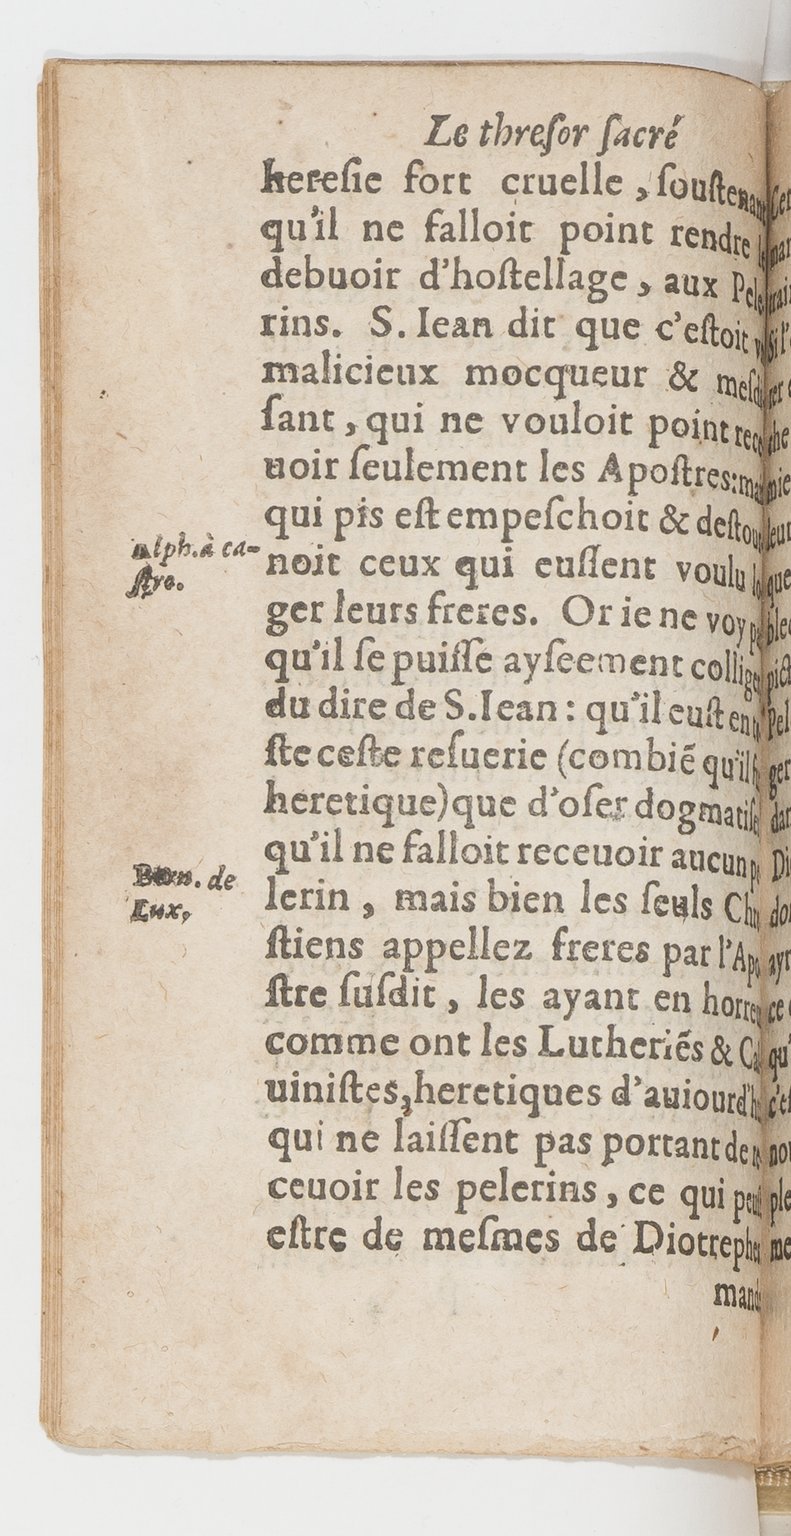 Le threſor ſacré
hereſie fort cruelle, ſouſtenan
qu'il ne falloit point rendre
debuoir d'hoſtellage, aux Pele
rins. S. Iean dit que c'eſtoit
malicieux mocqueur & meſdi
ſant, qui ne vouloit point rece
uoir ſeulement les Apoſtres: ma
qui pis eſt empeſchoit & deſtour
alph. à ca-
ſtro.
noit ceux qui euſſent voulu lo
ger leurs freres. Or ie ne voy p
qu'il ſe puiſſe ayſeement collige
du dire de S. Iean: qu'il euſt en
ſte ceſte reſuerie (combié qu'il
heretique) que d'oſer dogmatiſe
qu'il ne falloit receuoir aucun pe
Bern. de
Lux,
lerin, mais bien les ſeuls Chr
ſtiens appellez freres par l'Apo
ſtre ſuſdit, les ayant en horre
comme ont les Lutheriés & Cal
uiniſtes, heretiques d'auiourd'h
qui ne laiſſent pas portant de re
ceuoir les pelerins, ce qui peu
eſtre de meſmes de Diotreph
mand